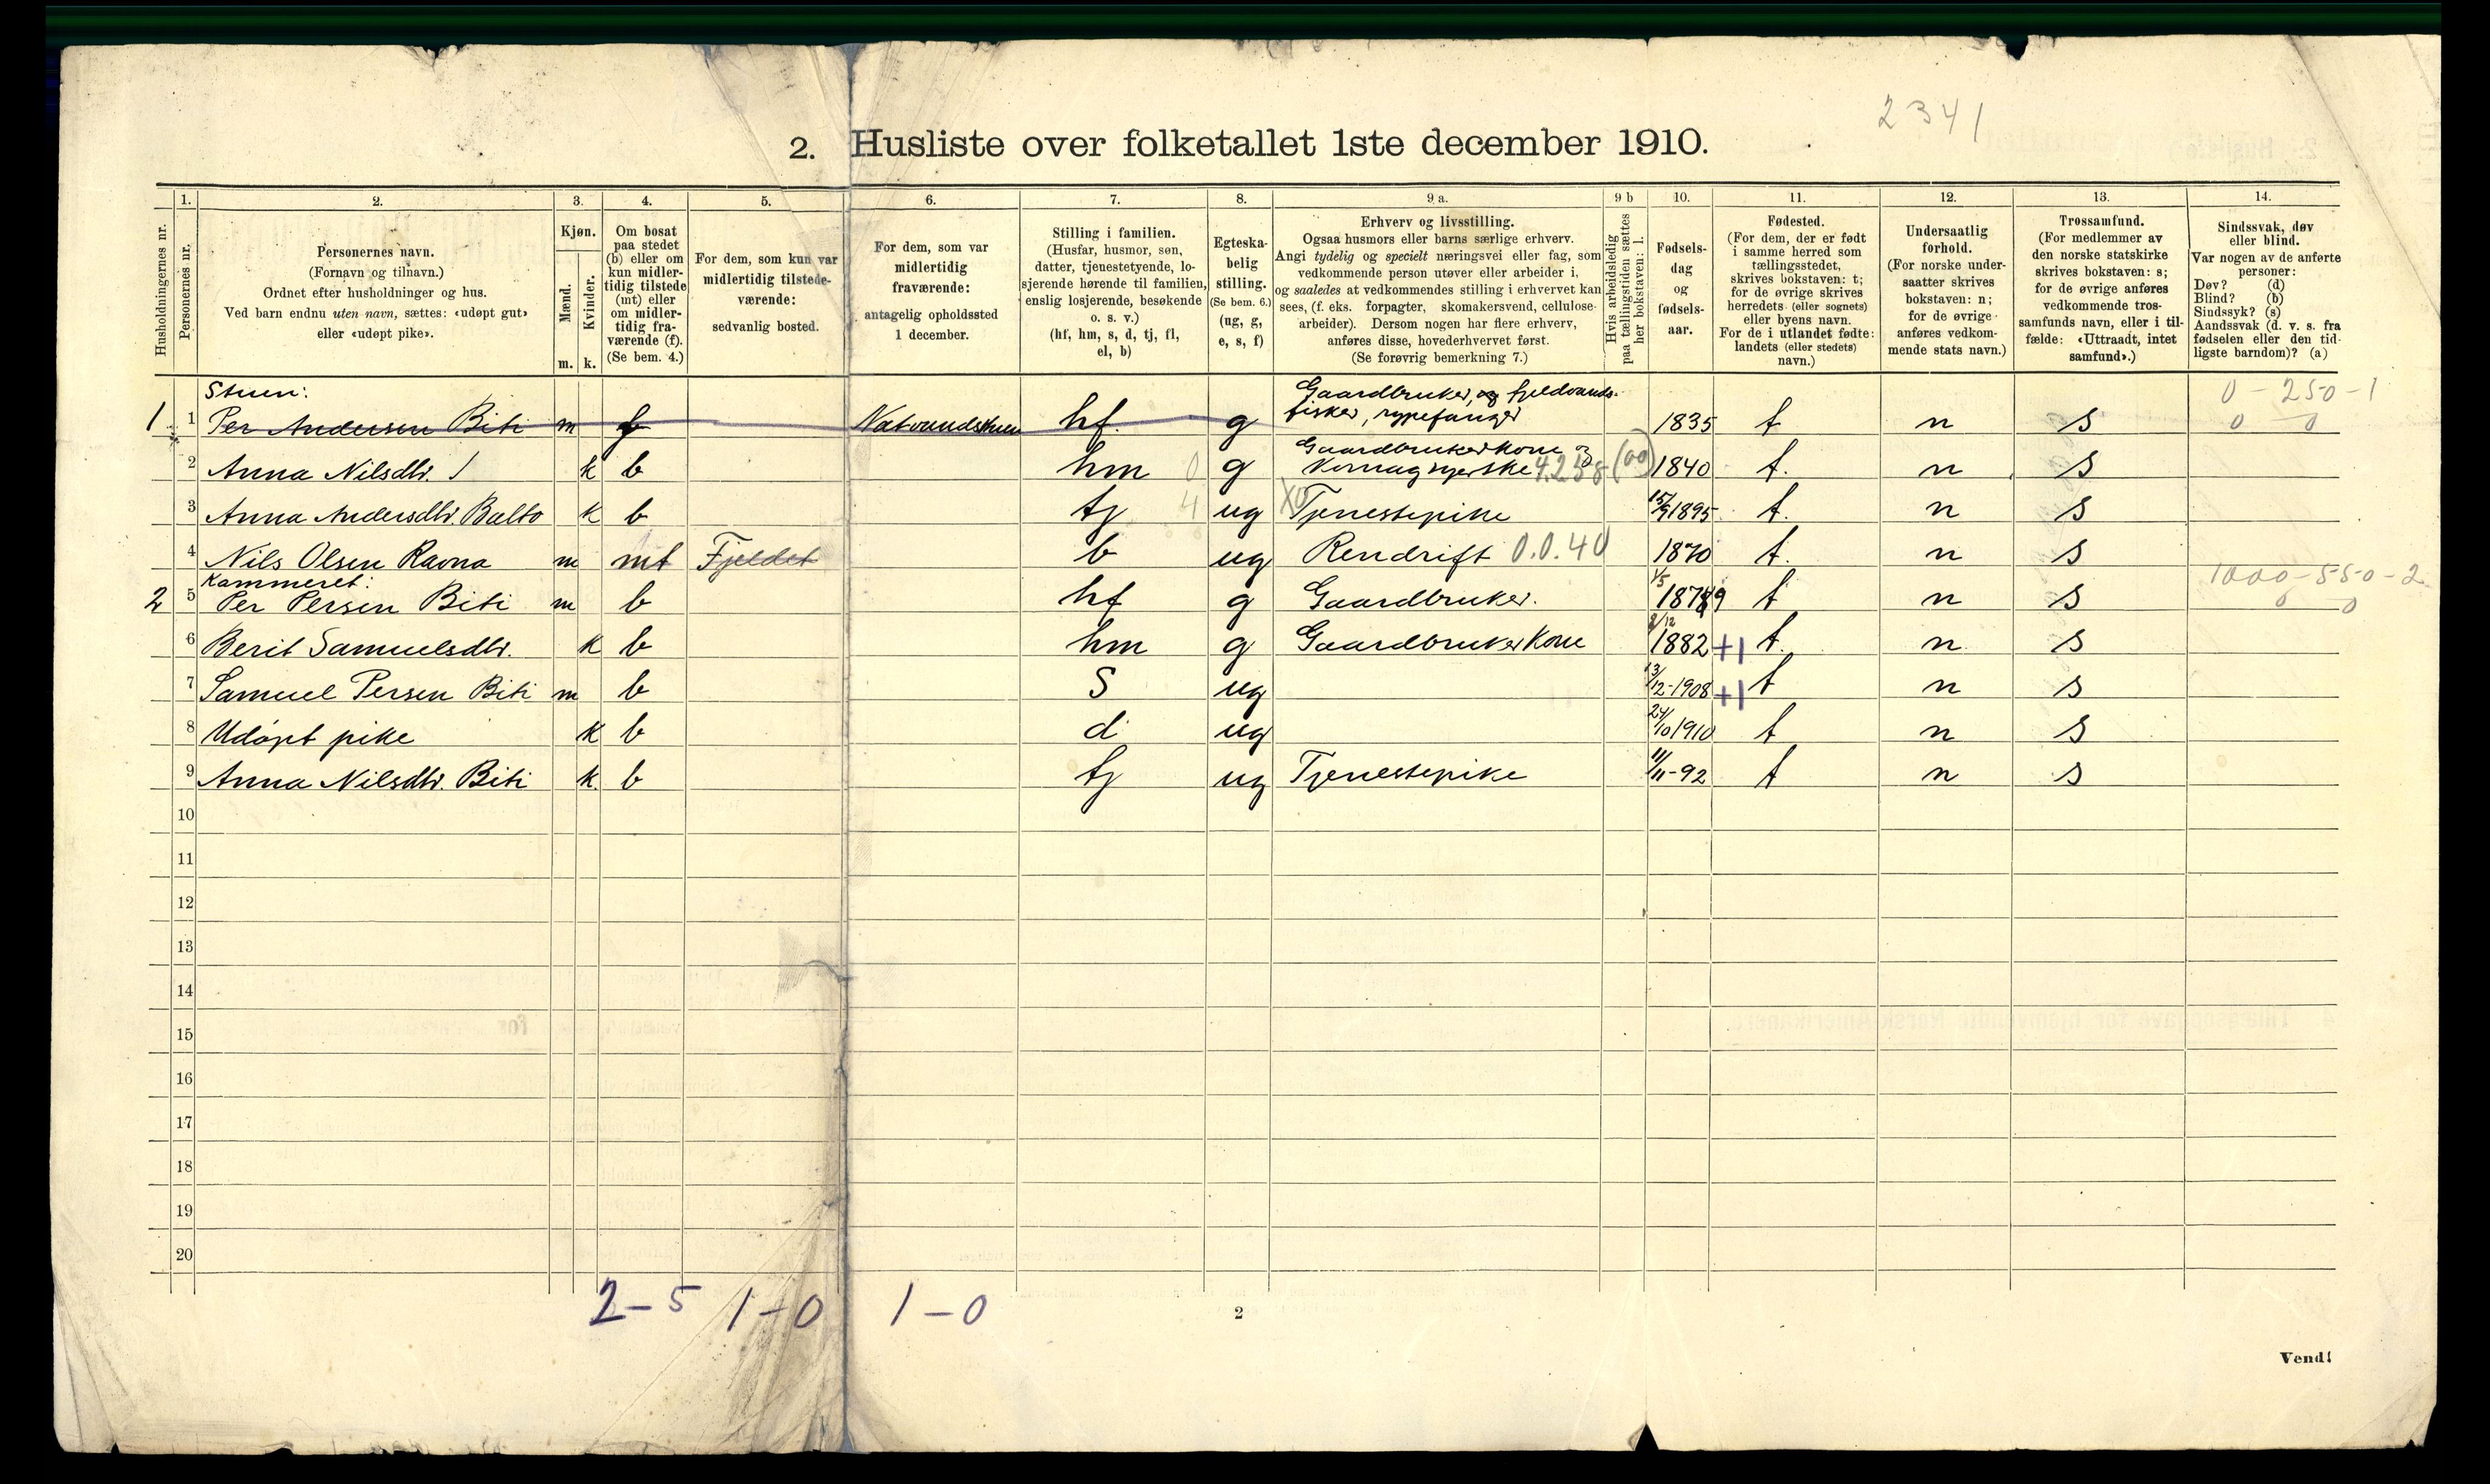 2341
2. Husliste over folketallet 1ste december 1910.
Husholdningernes nr.
1.
Personernes nr.
2.
Personernes navn.
(Fornavn og tilnavn.)
Ordnet efter husholdninger og hus.
Ved barn endnu uten navn, sættes: «udøpt gut»
eller «udøpt pike».
3.
Kjøn.
Mænd.
Kvinder.
m. k.
4.
Om bosat
paa stedet
(b) eller om
kun midler-
tidig tilstede
(mt) eller
om midler-
tidig fra-
værende (f).
(Se bem. 4.)
5.
For dem, som kun var
midlertidig tilstede-
værende:
sedvanlig bosted.
6.
For dem, som var
midlertidig
fraværende:
antagelig opholdssted
1 december.
7.
Stilling i familien.
(Husfar, husmor, søn,
datter, tjenestetyende, lo-
sjerende hørende til familien,
enslig losjerende, besøkende
o. s. v.)
(hf, hm, s, d, tj, fl,
el, b)
8.
Egteska-
belig
stilling.
(Se bem. 6.)
(ug, g,
e, s, f)
9 a.
Erhverv og livsstilling.
Ogsaa husmors eller barns særlige erhverv.
Angi tydelig og specielt næringsvei eller fag, som
vedkommende person utøver eller arbeider i,
og saaledes at vedkommendes stilling i erhvervet kan
sees, (f. eks. forpagter, skomakersvend, cellulose-
arbeider). Dersom nogen har flere erhverv,
anføres disse, hovederhvervet først.
(Se forøvrig bemerkning 7.)
9 b
Hvis arbeidsledig
paa tællingstiden sættes
her bokstaven: l.
10.
Fødsels-
dag
og
fødsels-
aar.
11.
Fødested.
(For dem, der er født
i samme herred som
tællingsstedet,
skrives bokstaven: t;
for de øvrige skrives
herredets (eller sognets)
eller byens navn.
For de i utlandet fødte:
landets (eller stedets)
navn.)
12.
Undersaatlig
forhold.
(For norske under-
saatter skrives
bokstaven: n;
for de øvrige
anføres vedkom-
mende stats navn.)
13.
Trossamfund.
(For medlemmer av
den norske statskirke
skrives bokstaven: s;
for de øvrige anføres
vedkommende tros-
samfunds navn, eller i til-
fælde: «Uttraadt, intet
samfund».)
14.
Sindssvak, døv
eller blind.
Var nogen av de anførte
personer:
Døv? (d)
Blind? (b)
Sindssyk? (s)
Aandssvak (d. v. s. fra
fødselen eller den tid-
ligste barndom)? (a)
Stuen:
1 1 Per Andersen Biti m f hf. g Gaardbruker, og fjeldvands-
fisker, rypefanger 1835 t n s 0-250-1
0 0
2 Anna Nilsdtr. k b hm 0 g Gaardbrukerkone og
4.258 (00) 1840 t. n s
3 Anna Andersdtr. Balto k b tj 4 ug Tjenestepike 15/9 1895 t. n s
4 Nils Olsen Ravna m mt Fjeldet b ug Rendrift 0.0.40 1870 t. n s
Kammeret:
2 5 Per Persen Biti m b hf g Gaardbruker. 1/5 1879 t n s 1000-550-2
0 0
6 Berit Samuelsdtr. k b hm g Gaardbrukerkone 8/12 1882 +1 t. n s
7 Samuel Persen Biti m b S ug 13/12-1908 +1 t n s
8 Udøpt pike k b d ug 24/10 1910 t n s
9 Anna Nilsdtr. Biti k. b tj ug Tjenestepike 11/11-92 t n s
10
11
12
13
14
15
16
17
18
19
20
2-5 1-0 1-0
2
Vend!